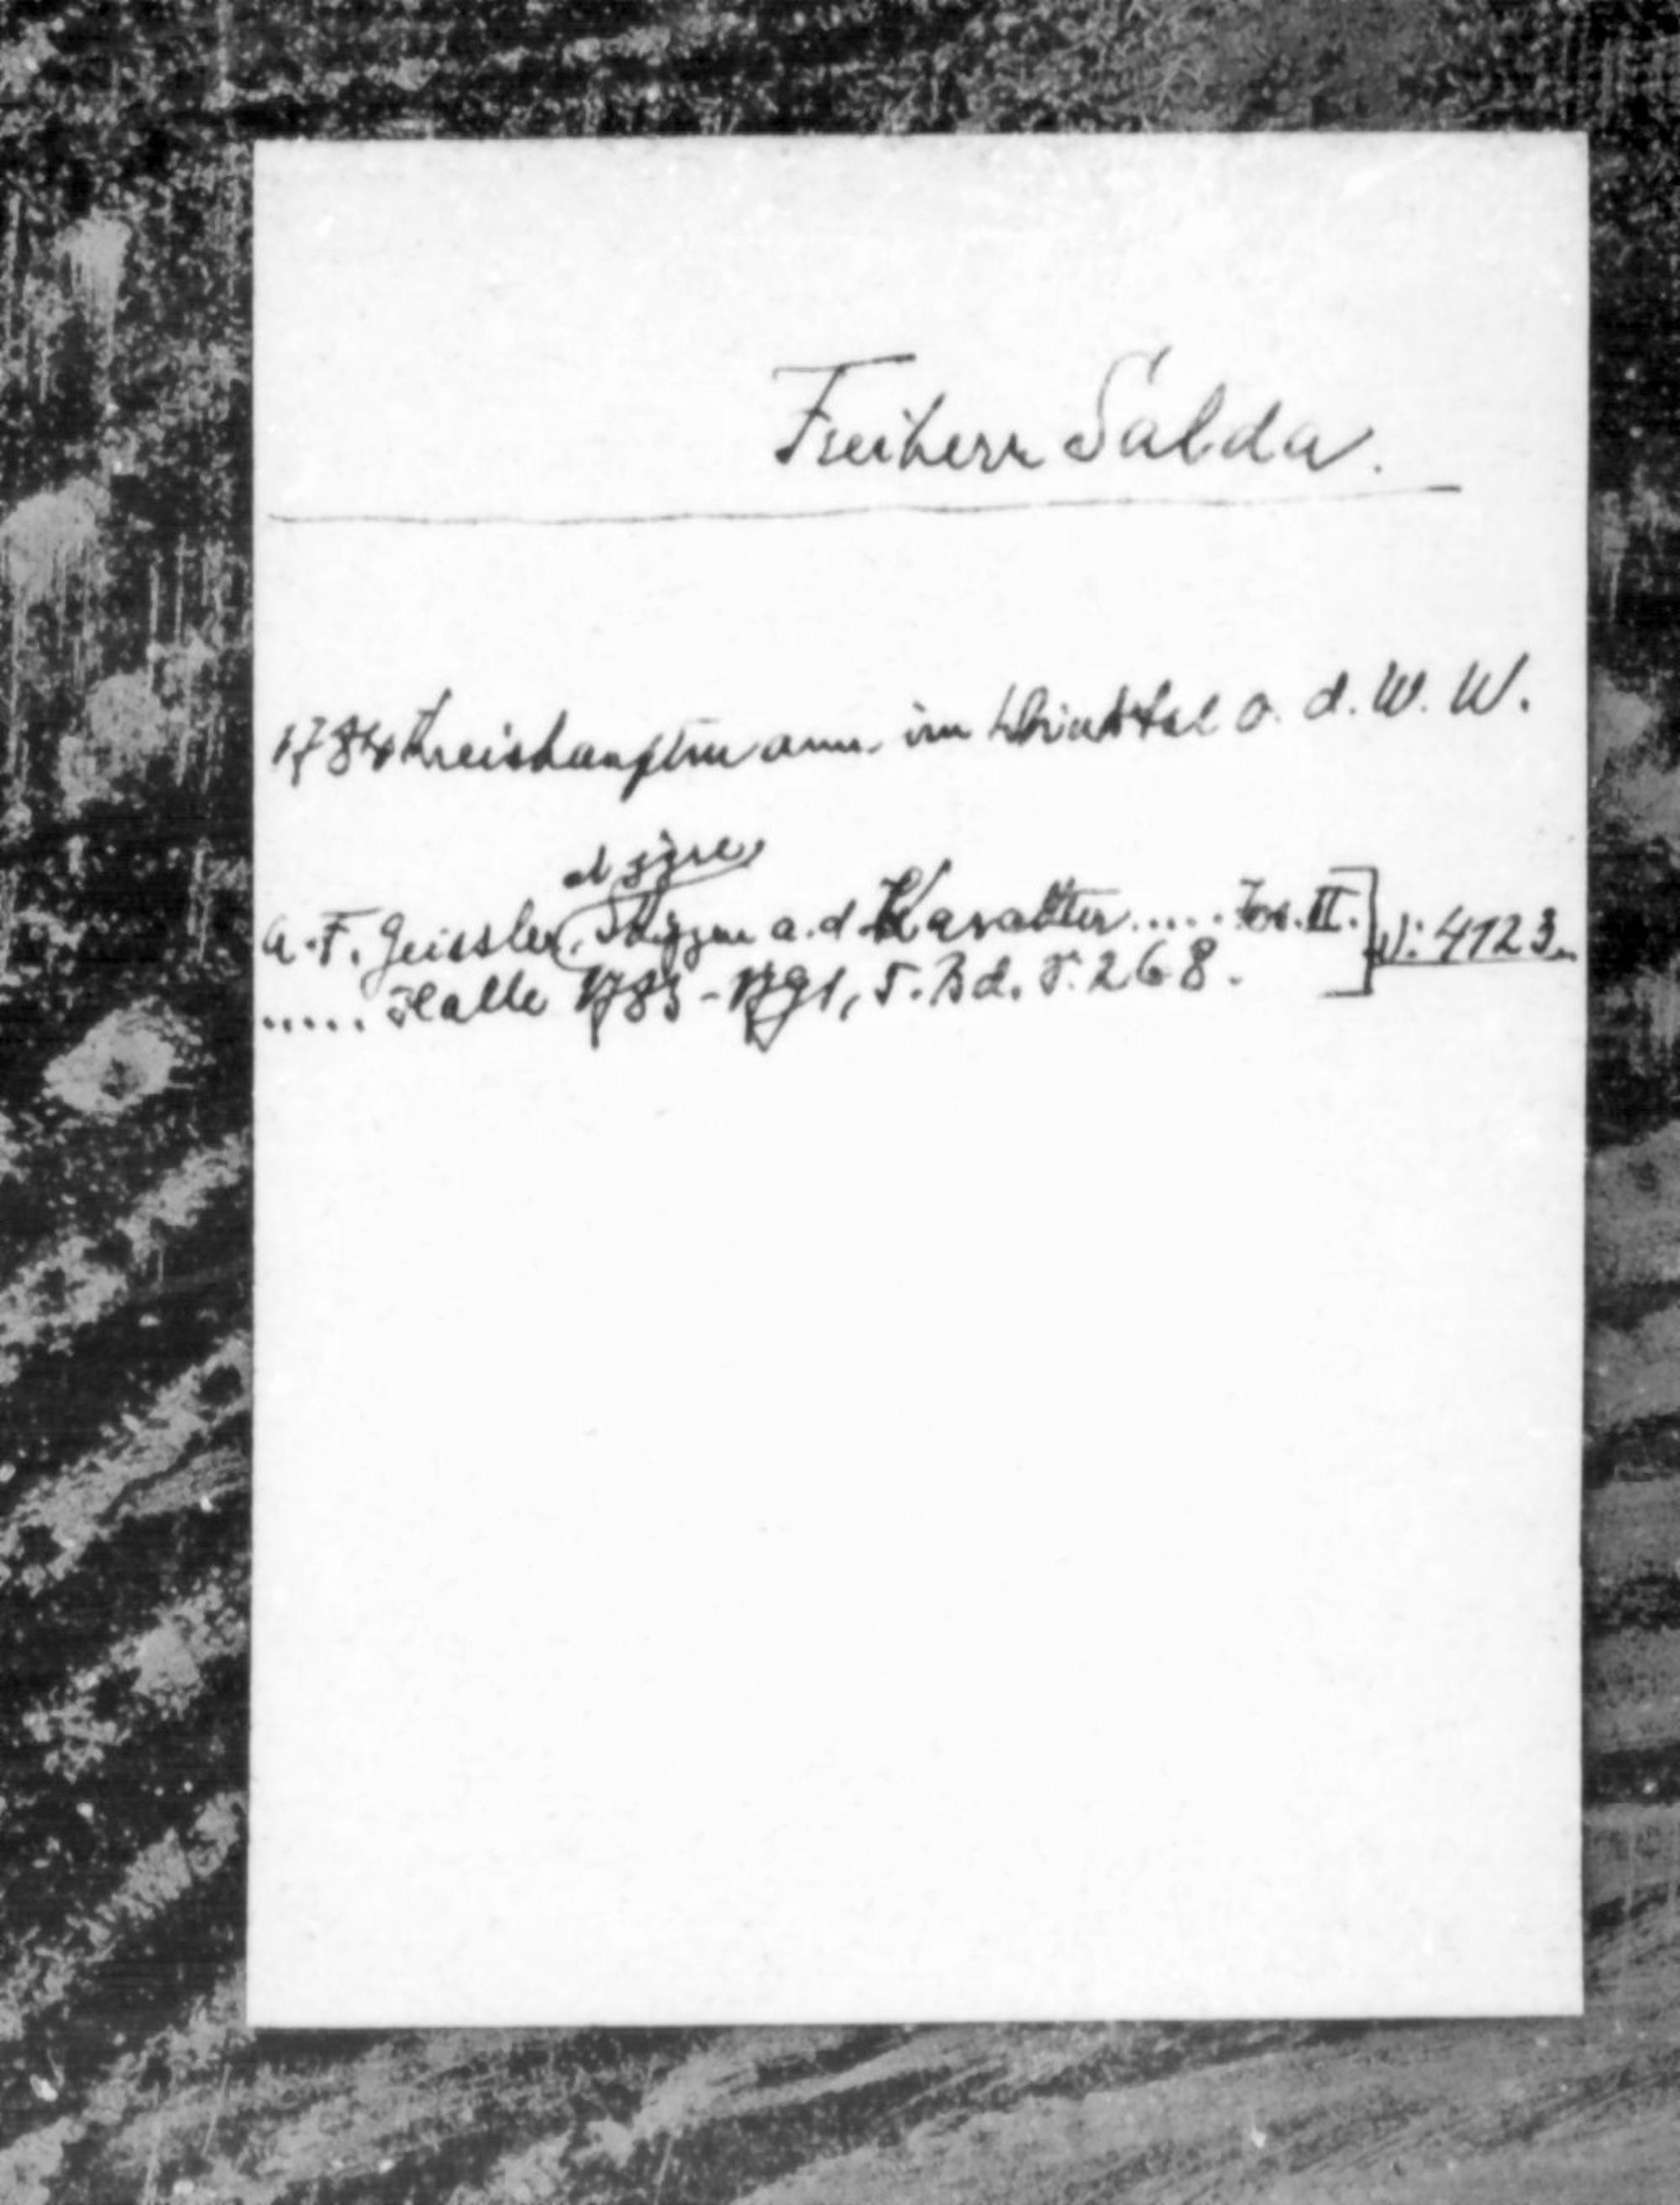 Freiherr Salda.
1784 Kreishauptmann im Viertel o. d. W. W.
A. F. Geissler, Skizzen a. d. Karakter ..... Jos. II. ] V: 4123
..... Halle 1783-1791, 5. Bd. S. 268.